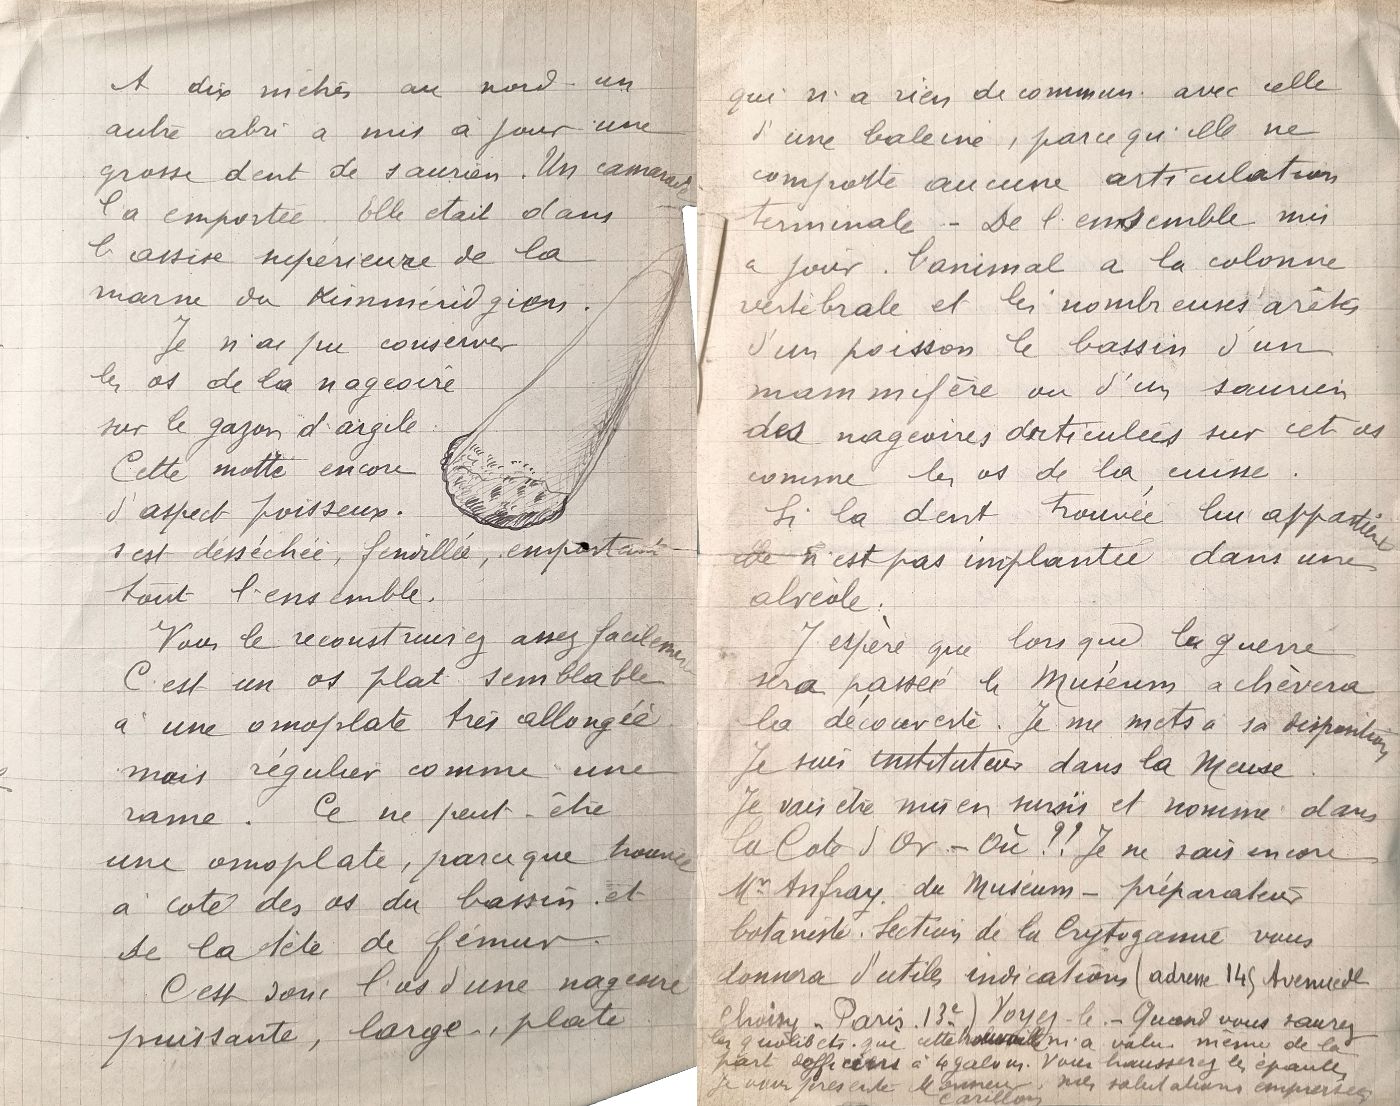 A dix mètres au nord un
autre abri a mis à jour une
grosse dent de saurien. Un camarade
l'a emportée. Elle etait dans
l'assise supérieure de la
marne du Kimméridgien.
Je n'ai pu conserver
les os de la nageoire
sur le gazon d'argile.
Cette motte encore
d'aspect poisseux.
s'est désséchée, feuillée, emportant
tout l'ensemble.
Vous le reconstruirez assez facilement
C'est un os plat semblable
à une omoplate très allongée
mais régulier comme une
rame. Ce ne peut-être
une omoplate, parceque trouvée
à coté des os du bassin et
de la tête de fémur.
C'est donc l'os d'une nageoire
puissante, large, plate
qui n'a rien de commun avec celle
d'une baleine, parcequ'elle ne
comporte aucune articulation
terminale - De l'ensemble mis
a jour. l'animal a la colonne
vertébrale et les nombreuses arêtes
d'un poisson le bassin d'un
mammifère ou d'un saurien
des nageoires articulées sur cet os
comme les os de la cuisse.
Si la dent trouvée lui appartient
elle n'est pas implantée dans une
alvéole.
J'espère que lorsque la guerre
sera passée le Muséum achèvera
la découverte. Je me mets a sa disposition
Je suis instituteur dans la Meuse.
Je vais être mis en sursis et nommé dans
la Cote d'Or - Où ?! Je ne sais encore
Mr Anfray. du Muséum - préparateur
botaniste. Section de la Crytogamie vous
donnera d'utiles indications (adresse 145 Avenue de
Choisy - Paris. 13e) Voyez-le. - Quand vous saurez
les quolibets que cette trouvaille m'a valu même de la
part d'officiers à 4 galons. Vous hausserez les épaules
Je vous présente Monsieur, mes salutations empressées
Carillon